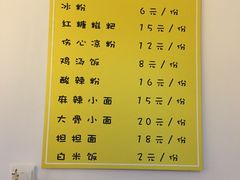 冰粉 6元/份
红糖糍粑 15元/份
伤心凉粉 12元/份
鸡汤饭 8元/份
酸辣粉 16元/份
麻辣小面 15元/份
大骨小面 20元/份
担担面 18元/份
白米饭 2元/份